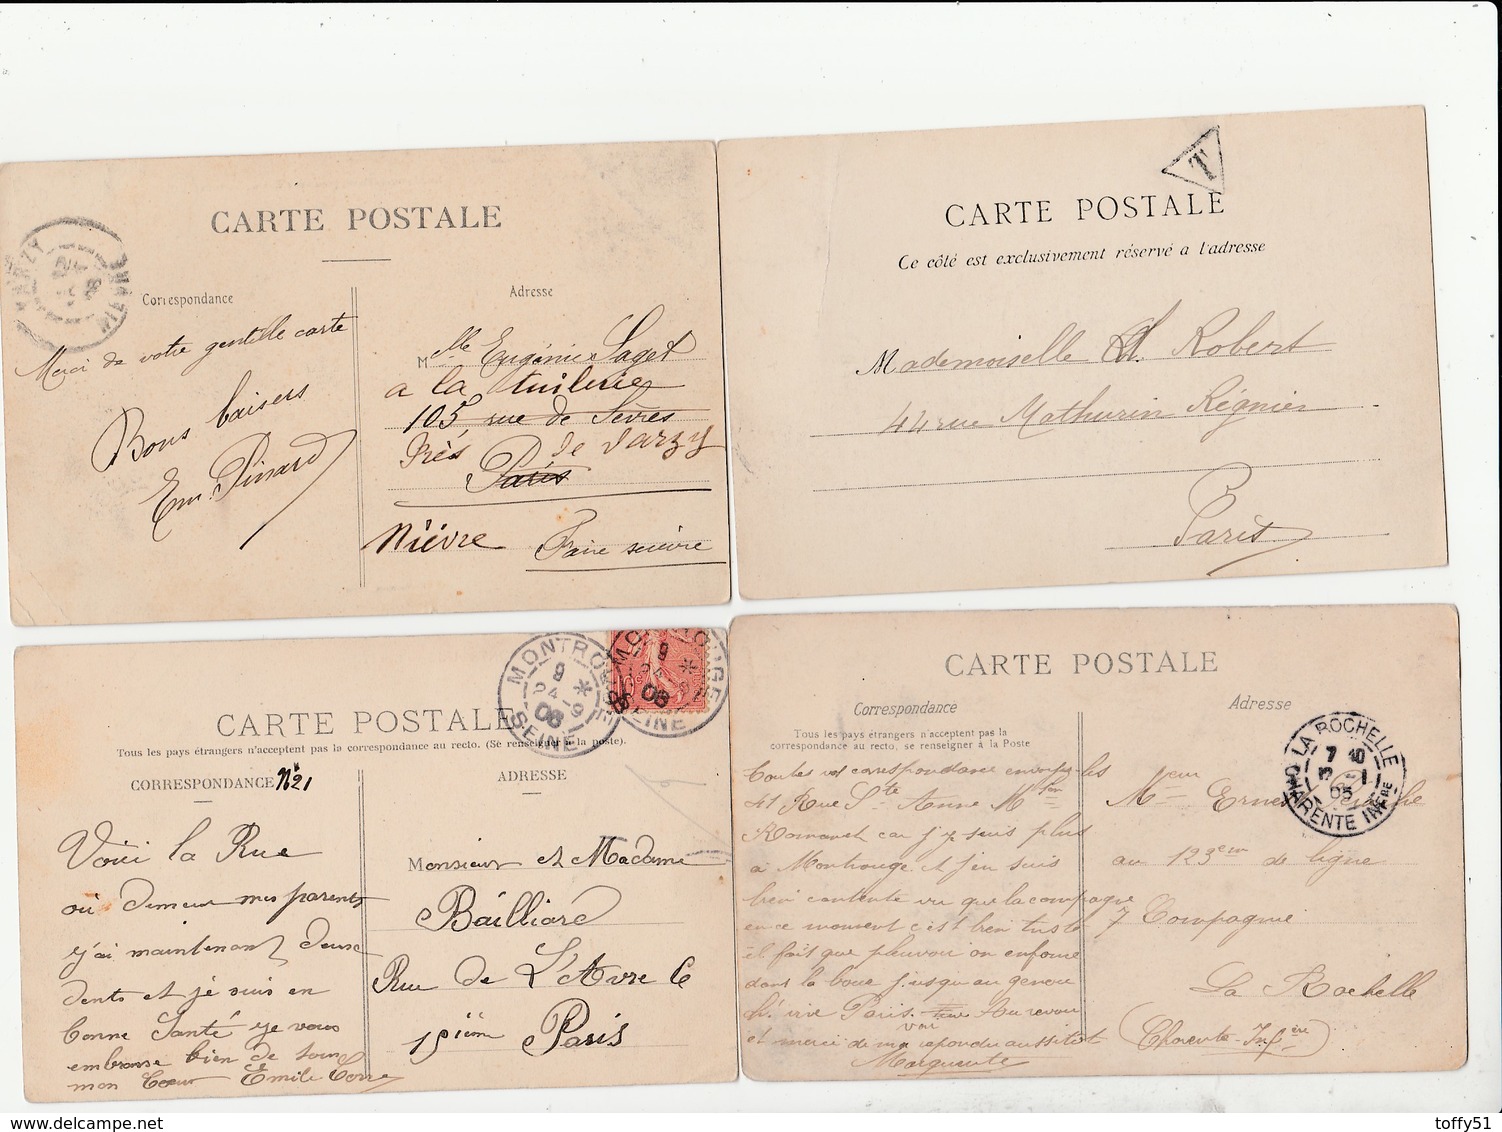 CARTE POSTALE
Correspondance
Adresse
Merci de votre gentille carte
Bons baisers
Em. Pinard
Mlle Eugénie Saget
a la tuilerie
105 rue de Sèvres
Près de Varzy
Paris
Nièvre
Faire suivre
VARZY
NIEVRE
T
CARTE POSTALE
Ce côté est exclusivement réservé a l'adresse
Mademoiselle A. Robert
44 rue Mathurin Régnier
Paris
CARTE POSTALE
Tous les pays étrangers n'acceptent pas la correspondance au recto. (Se renseigner à la poste).
CORRESPONDANCE N°21
ADRESSE
MONTROUGE
9
24 -9
06
SEINE
MONTROUGE
9
24 -9
06
SEINE
Voici la Rue
où demeur mes parents
j'ai maintenant deux
dents et je suis en
bonne Santé je vous
embrasse bien de tous
mon Coeur Emile
Monsieur et Madame
Bailliard
Rue de L'Avre 6
15ième Paris
CARTE POSTALE
Correspondance
Adresse
Tous les pays étrangers n'acceptent pas la
correspondance au recto, se renseigner à la Poste
LA ROCHELLE
CHARENTE INFRE
Toutes vos correspondance envoyez-les
41 Rue Ste Anne Mson
Romanet car j'y suis plus
à Montrouge et j'en suis
bien contente vu que la compagne
en ce moment c'est bien triste
il fait que pleuvoir on enfonce
dans la boue jusqu'au genou
h! vive Paris. Au revoir
et merci de ma voir repondu aussitot
Marguerite
Mieur Ernest
au 123em de ligne
7 Compagnie
La Rochelle
(Charente-Infère)
toffy51